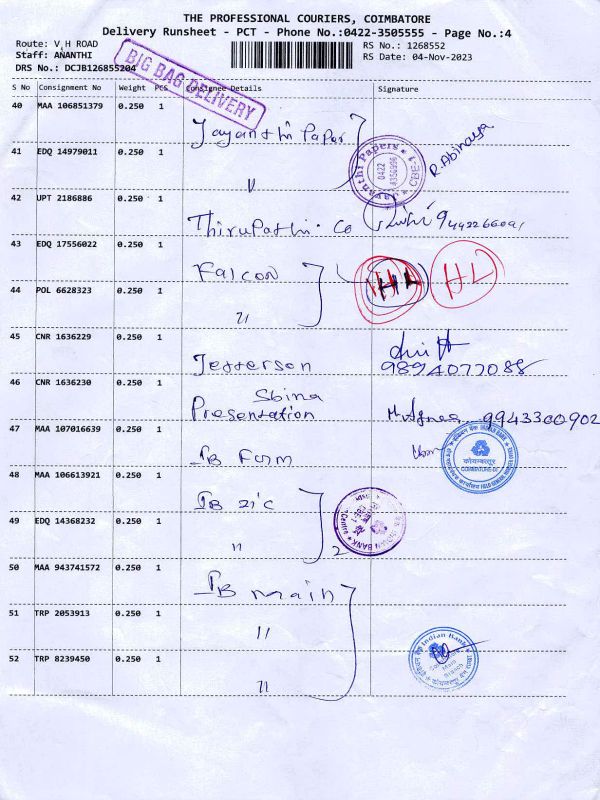 THE PROFESSIONAL COURIERS, COIMBATORE
Delivery Runsheet - PCT - Phone No.:0422-3505555 - Page No.:4
Route: V H ROAD
Staff: ANANTHI
DRS No.: DCJB126855204
RS No.: 1268552
RS Date: 04-Nov-2023
BIG BAG DELIVERY
S No Consignment No Weight PCS Consignee Details Signature
40 MAA 106851379 0.250 1 Jayanthi Paper
Jayanthi Papers CBE-1 0422
R. Abinaya
41 EDQ 14979011 0.250 1 "
42 UPT 2186886 0.250 1 Thirupathi. Co
43 EDQ 17556022 0.250 1 Falcon HL HL
44 POL 6628323 0.250 1 "
45 CNR 1636229 0.250 1 Jefferson 9894077088
46 CNR 1636230 0.250 1 Sbina Presentation 9943300902
47 MAA 107016639 0.250 1 IB Form
INDIAN BANK COIMBATORE
48 MAA 106613921 0.250 1 IB ZIC
INDIAN BANK
49 EDQ 14368232 0.250 1 " 2
50 MAA 943741572 0.250 1 IB main
51 TRP 2053913 0.250 1 "
Indian Bank Main Branch
52 TRP 8239450 0.250 1 "